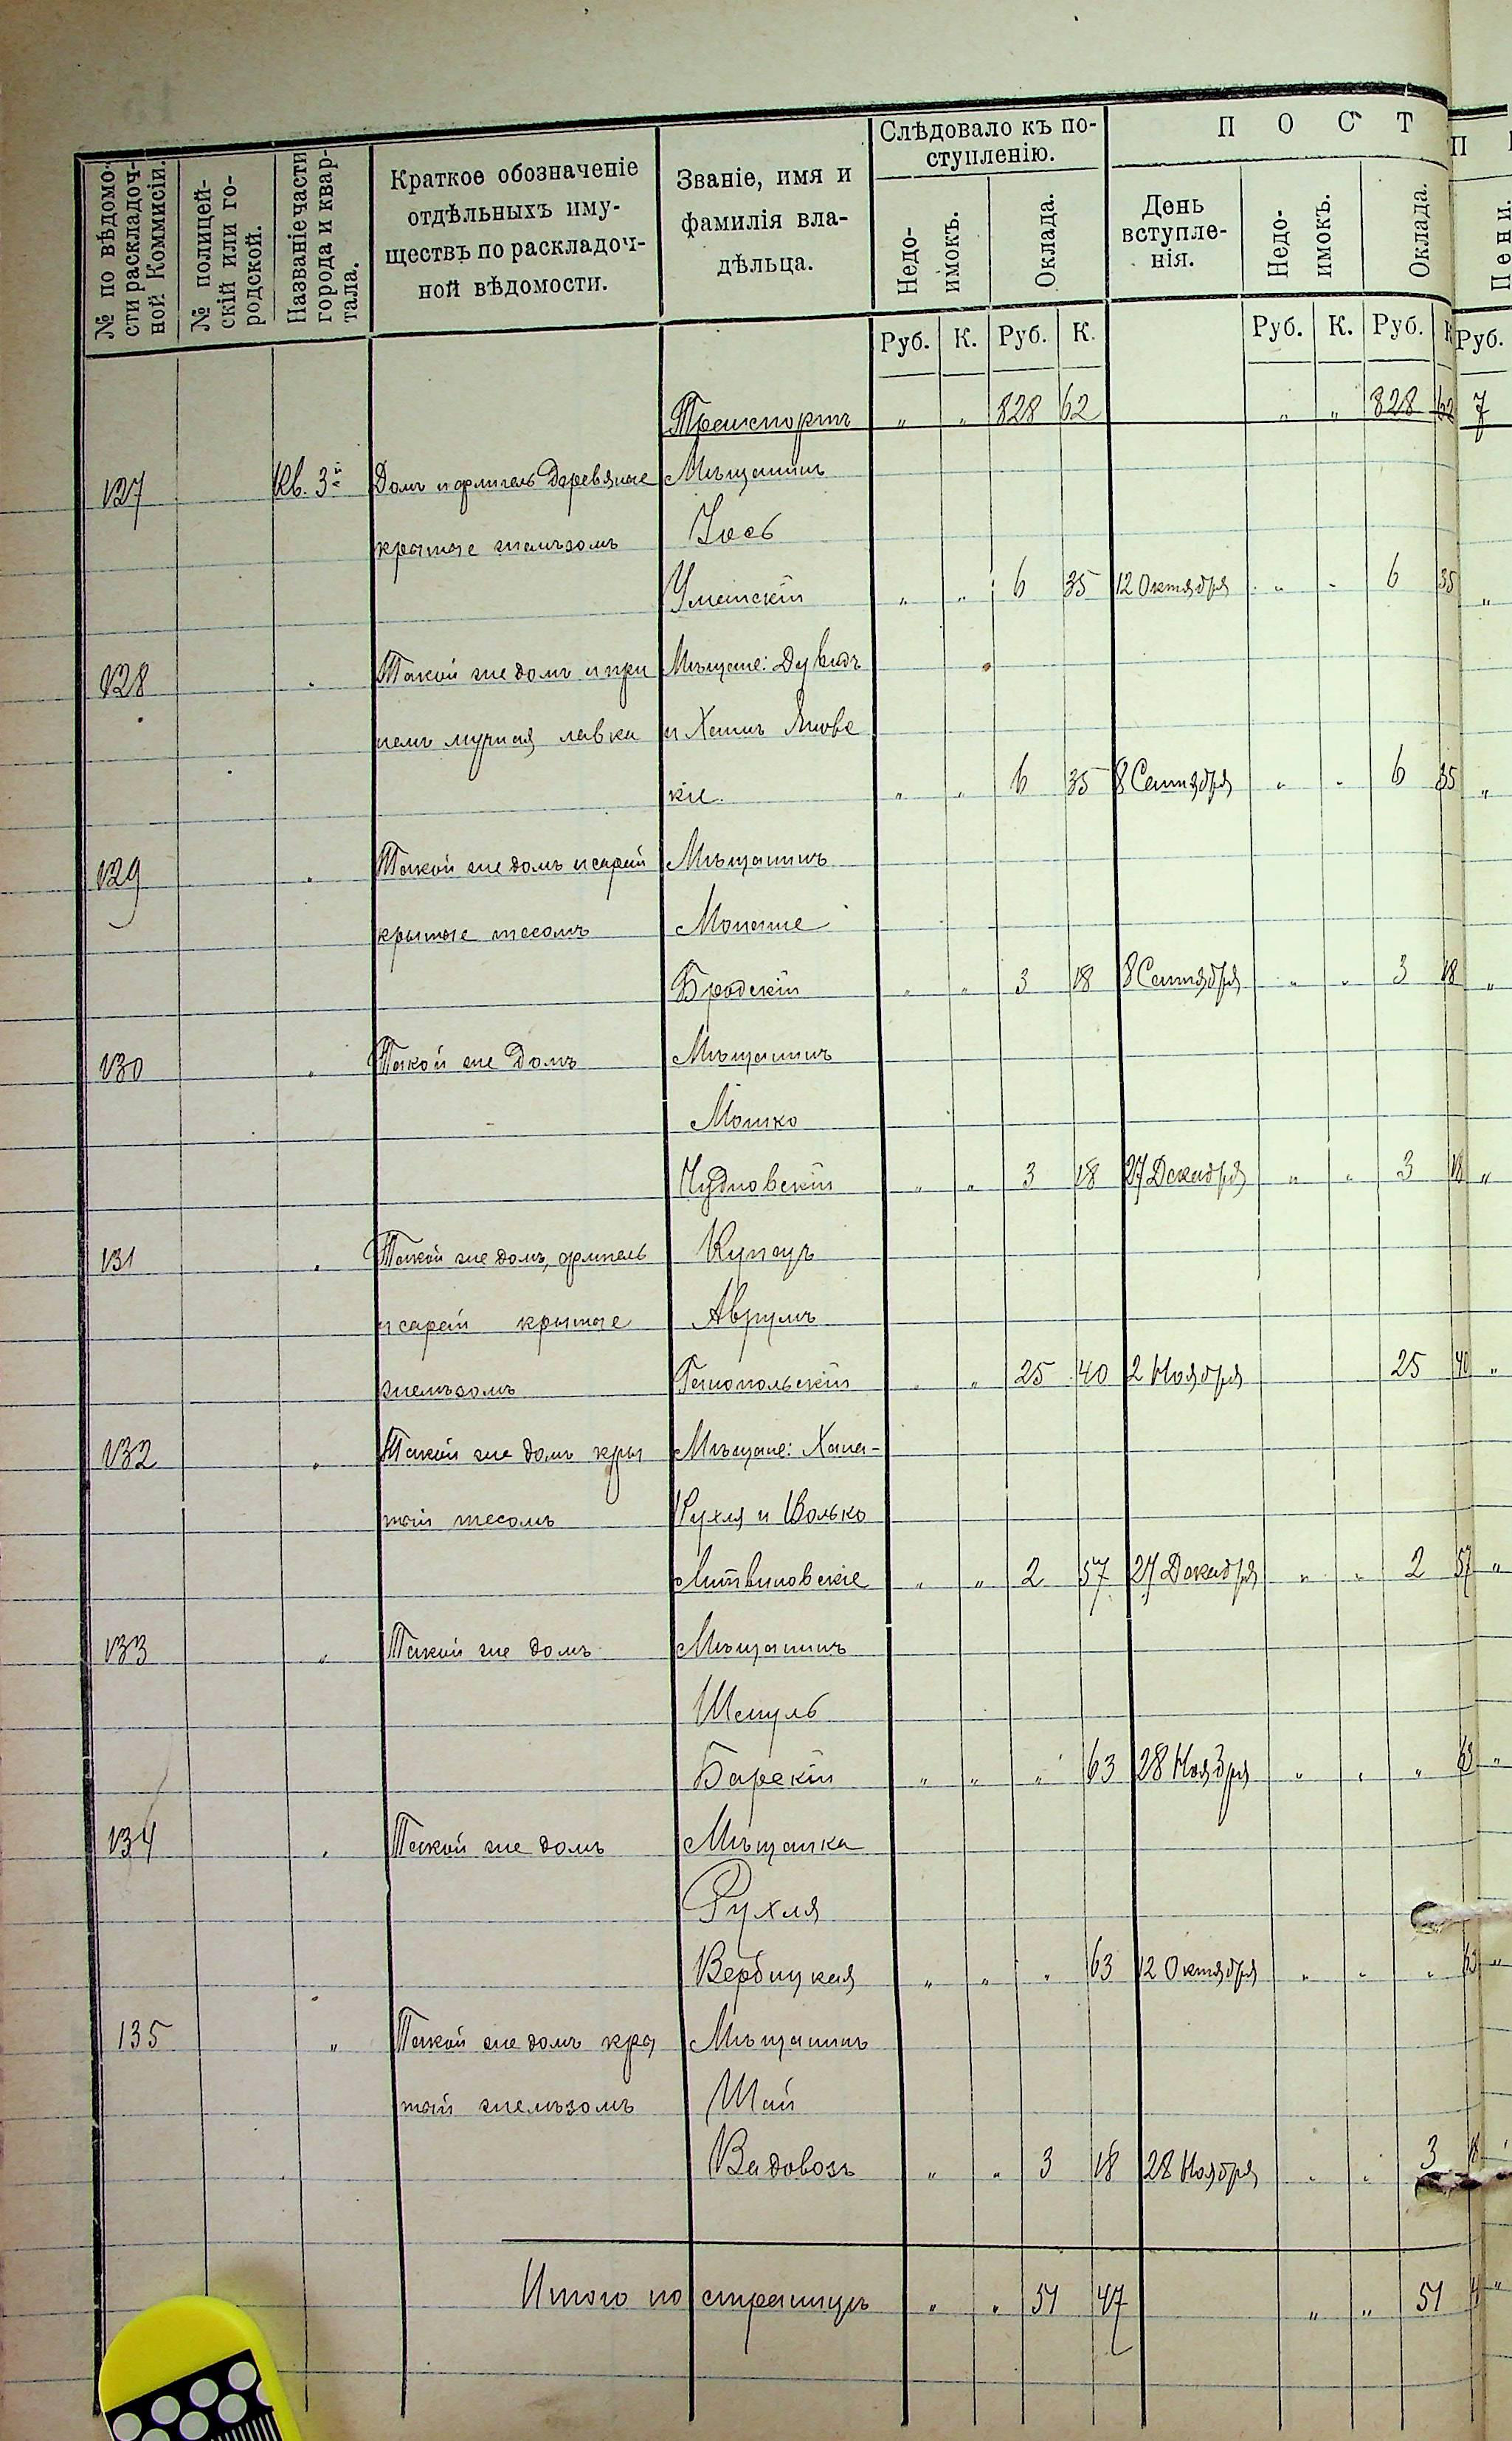 № по вѣдомо-
сти раскладоч-
ной Коммисіи.
№ полицей-
скій или го-
родской.
Названіе части
города и квар-
тала.
Краткое обозначеніе
отдѣльныхъ иму-
ществъ по раскладоч-
ной вѣдомости.
Званіе, имя и
фамилія вла-
дѣльца.
Слѣдовало къ по-
ступленію.
Недо-
имокъ.
Оклада.
П О С Т
День
вступле-
нія.
Недо-
имокъ.
Оклада.
П
Пени.
Руб. К. Руб. К. Руб. К. Руб. К Руб.
Транспортъ " " 828 62 " " 828 62 7
127 Кв. 3й Домъ и флигель деревяные Мѣщанинъ
крытые желѣзомъ Іось
Уманскій " " 6 35 12 Октября " " 6 35 "
128 " Такой же домъ и при Мѣщане: Дувидъ
немъ мучная лавка и Хаимъ Янов
кіе. " " 6 35 8 Сентября " " 6 35 "
129 " Такой же домъ и сарай Мѣщанинъ
крытые тесомъ
Бродскій " " 3 18 8 Сентября " " 3 18 "
130 " Такой же домъ Мѣщанинъ
Мошко
Чудновскій " " 3 18 27 Декабря " " 3 18 "
131 " Такой же домъ, флигель Купецъ
и сарай крытые Аврумъ
желѣзомъ " " 25 40 2 Ноября 25 40 "
132 " Такой же домъ кры Мѣщане: Хана-
тый тесомъ Рухля и Волько
Литвиновскіе " " 2 57 27 Декабря " " 2 57 "
133 " Такой же домъ Мѣщанинъ
Шмуль
Барскій " " " 63 28 Ноября " " " 63 "
134 " Такой же домъ Мѣщанка
Рухля
Вербицкая " " " 63 12 Октября " " " 63 "
135 " Такой же домъ кры Мѣщанинъ
тый желѣзомъ Шая
Вадовозъ " " 3 18 28 Ноября " " 3 18
Итого по страницѣ " " 51 47 " " 51 4 "